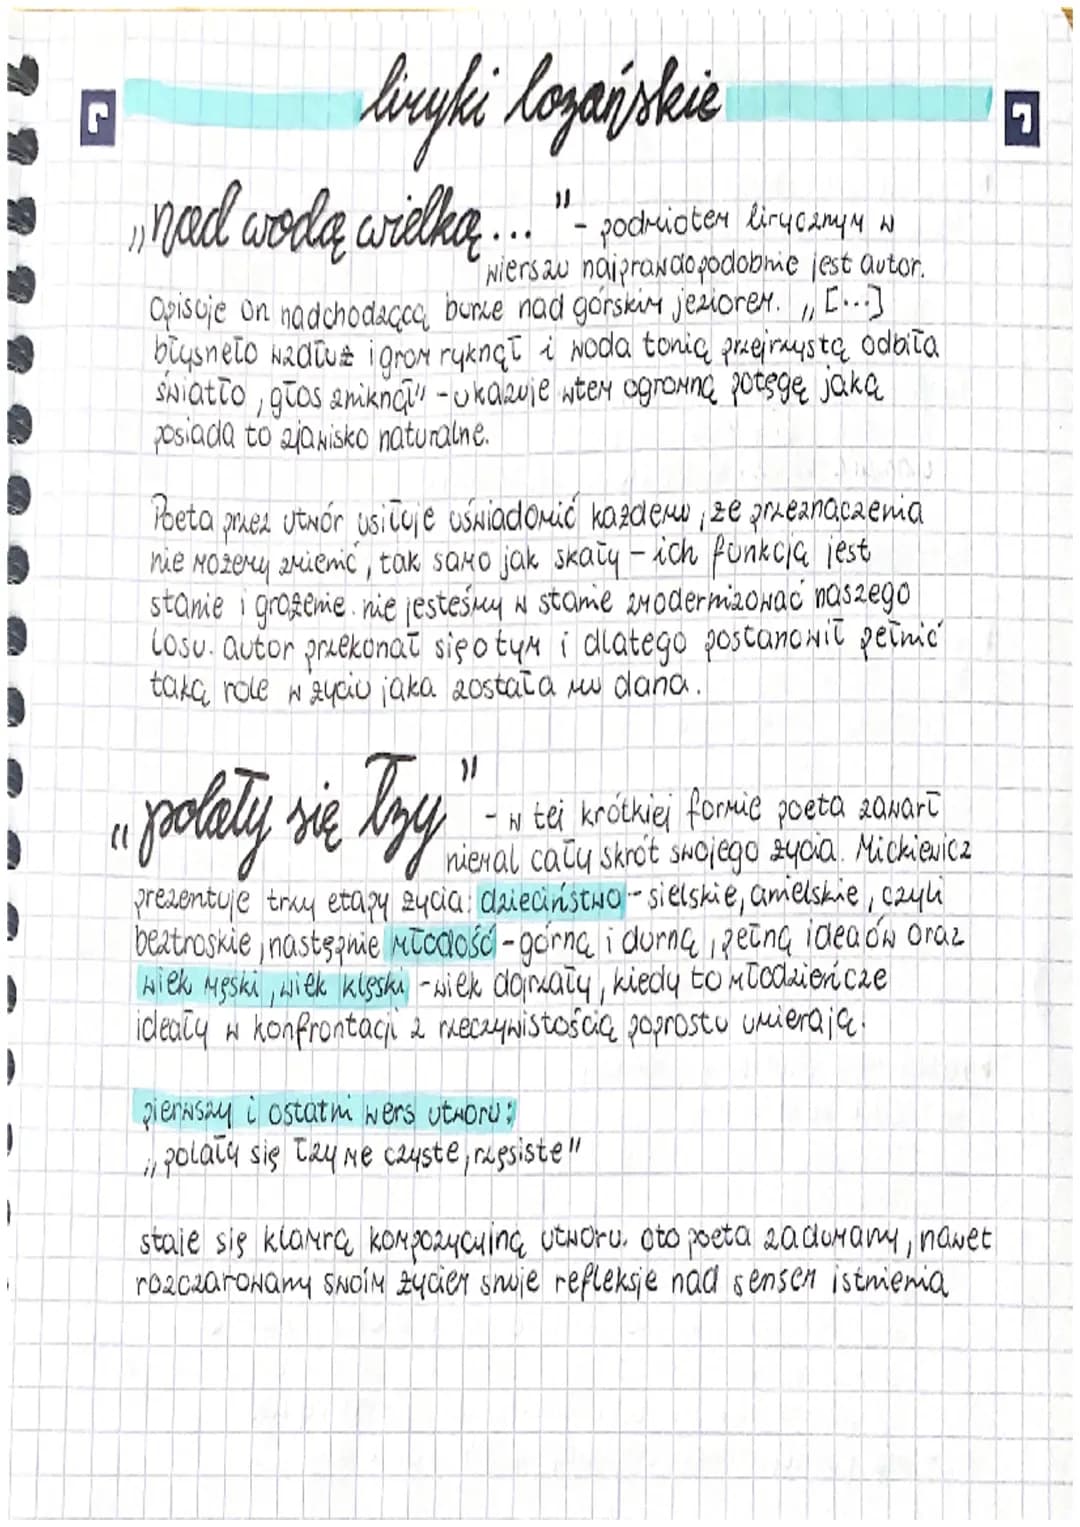 liryki lozańskie
„nad wodą wielką..." - podmiotem lirycznym w
wierszu najprawdopodobnie jest autor.
Opisuje on nadchodzącą burze nad górskim jeziorem. „[...]
błysneło wzdłuż i grom ryknął i woda tonią przejrzystą odbiła
światło, głos zniknął" - ukazuje wtem ogromną potęgę jaką
posiada to zjawisko naturalne.
Poeta przez utwór usiłuje uświadomić każdemu, że przeznaczenia
nie możemy zmienić, tak samo jak skały - ich funkcją jest
stanie i grożenie. nie jesteśmy w stanie zmodernizować naszego
Losu. autor przekonał się o tym i dlatego postanowił pełnić
taką role w życiu jaka została mu dana.
„polały się łzy" - w tej krótkiej formie poeta zawarł
niemal cały skrót swojego życia. Mickiewicz
prezentuje trzy etapy życia: dzieciństwo - sielskie, anielskie, czyli
beztroskie, następnie młodość - górną i durną, pełną ideałów oraz
wiek męski, wiek klęski - wiek dojrzały, kiedy to młodzieńcze
ideały w konfrontacji z rzeczywistością poprostu umierają.
pierwszy i ostatni wers utworu:
„polały się łzy me czyste, rzęsiste"
staje się klamrą kompozycyjną utworu. oto poeta zadumany, nawet
rozczarowany swoim życiem snuje refleksje nad sensem istnienia